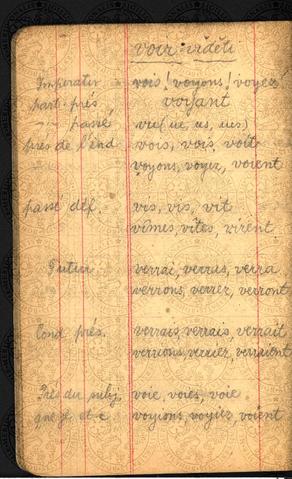 voir viděti
Imperatif vois! voyons! voyez!
part. prés voyant
—"— passé vu (ue, us, ues)
prés de l'ind vois, vois, voit
voyons, voyez, voient
passé déf. vis, vis, vit
vîmes, vîtes, virent
Futur verrai, verras, verra
verrons, verrez, verront
Cond prés. verrais, verrais, verrait
verrions, verriez, verraient
Prés du subj. voie, voies, voie
voyions, voyiez, voient